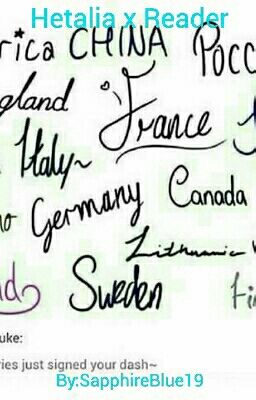 Hetalia x Reader
rica CHINA Росс
gland France
Italy~
Germany Canada
Lithuania
Sweden Fin
uke:
ries just signed your dash~
By:SapphireBlue19